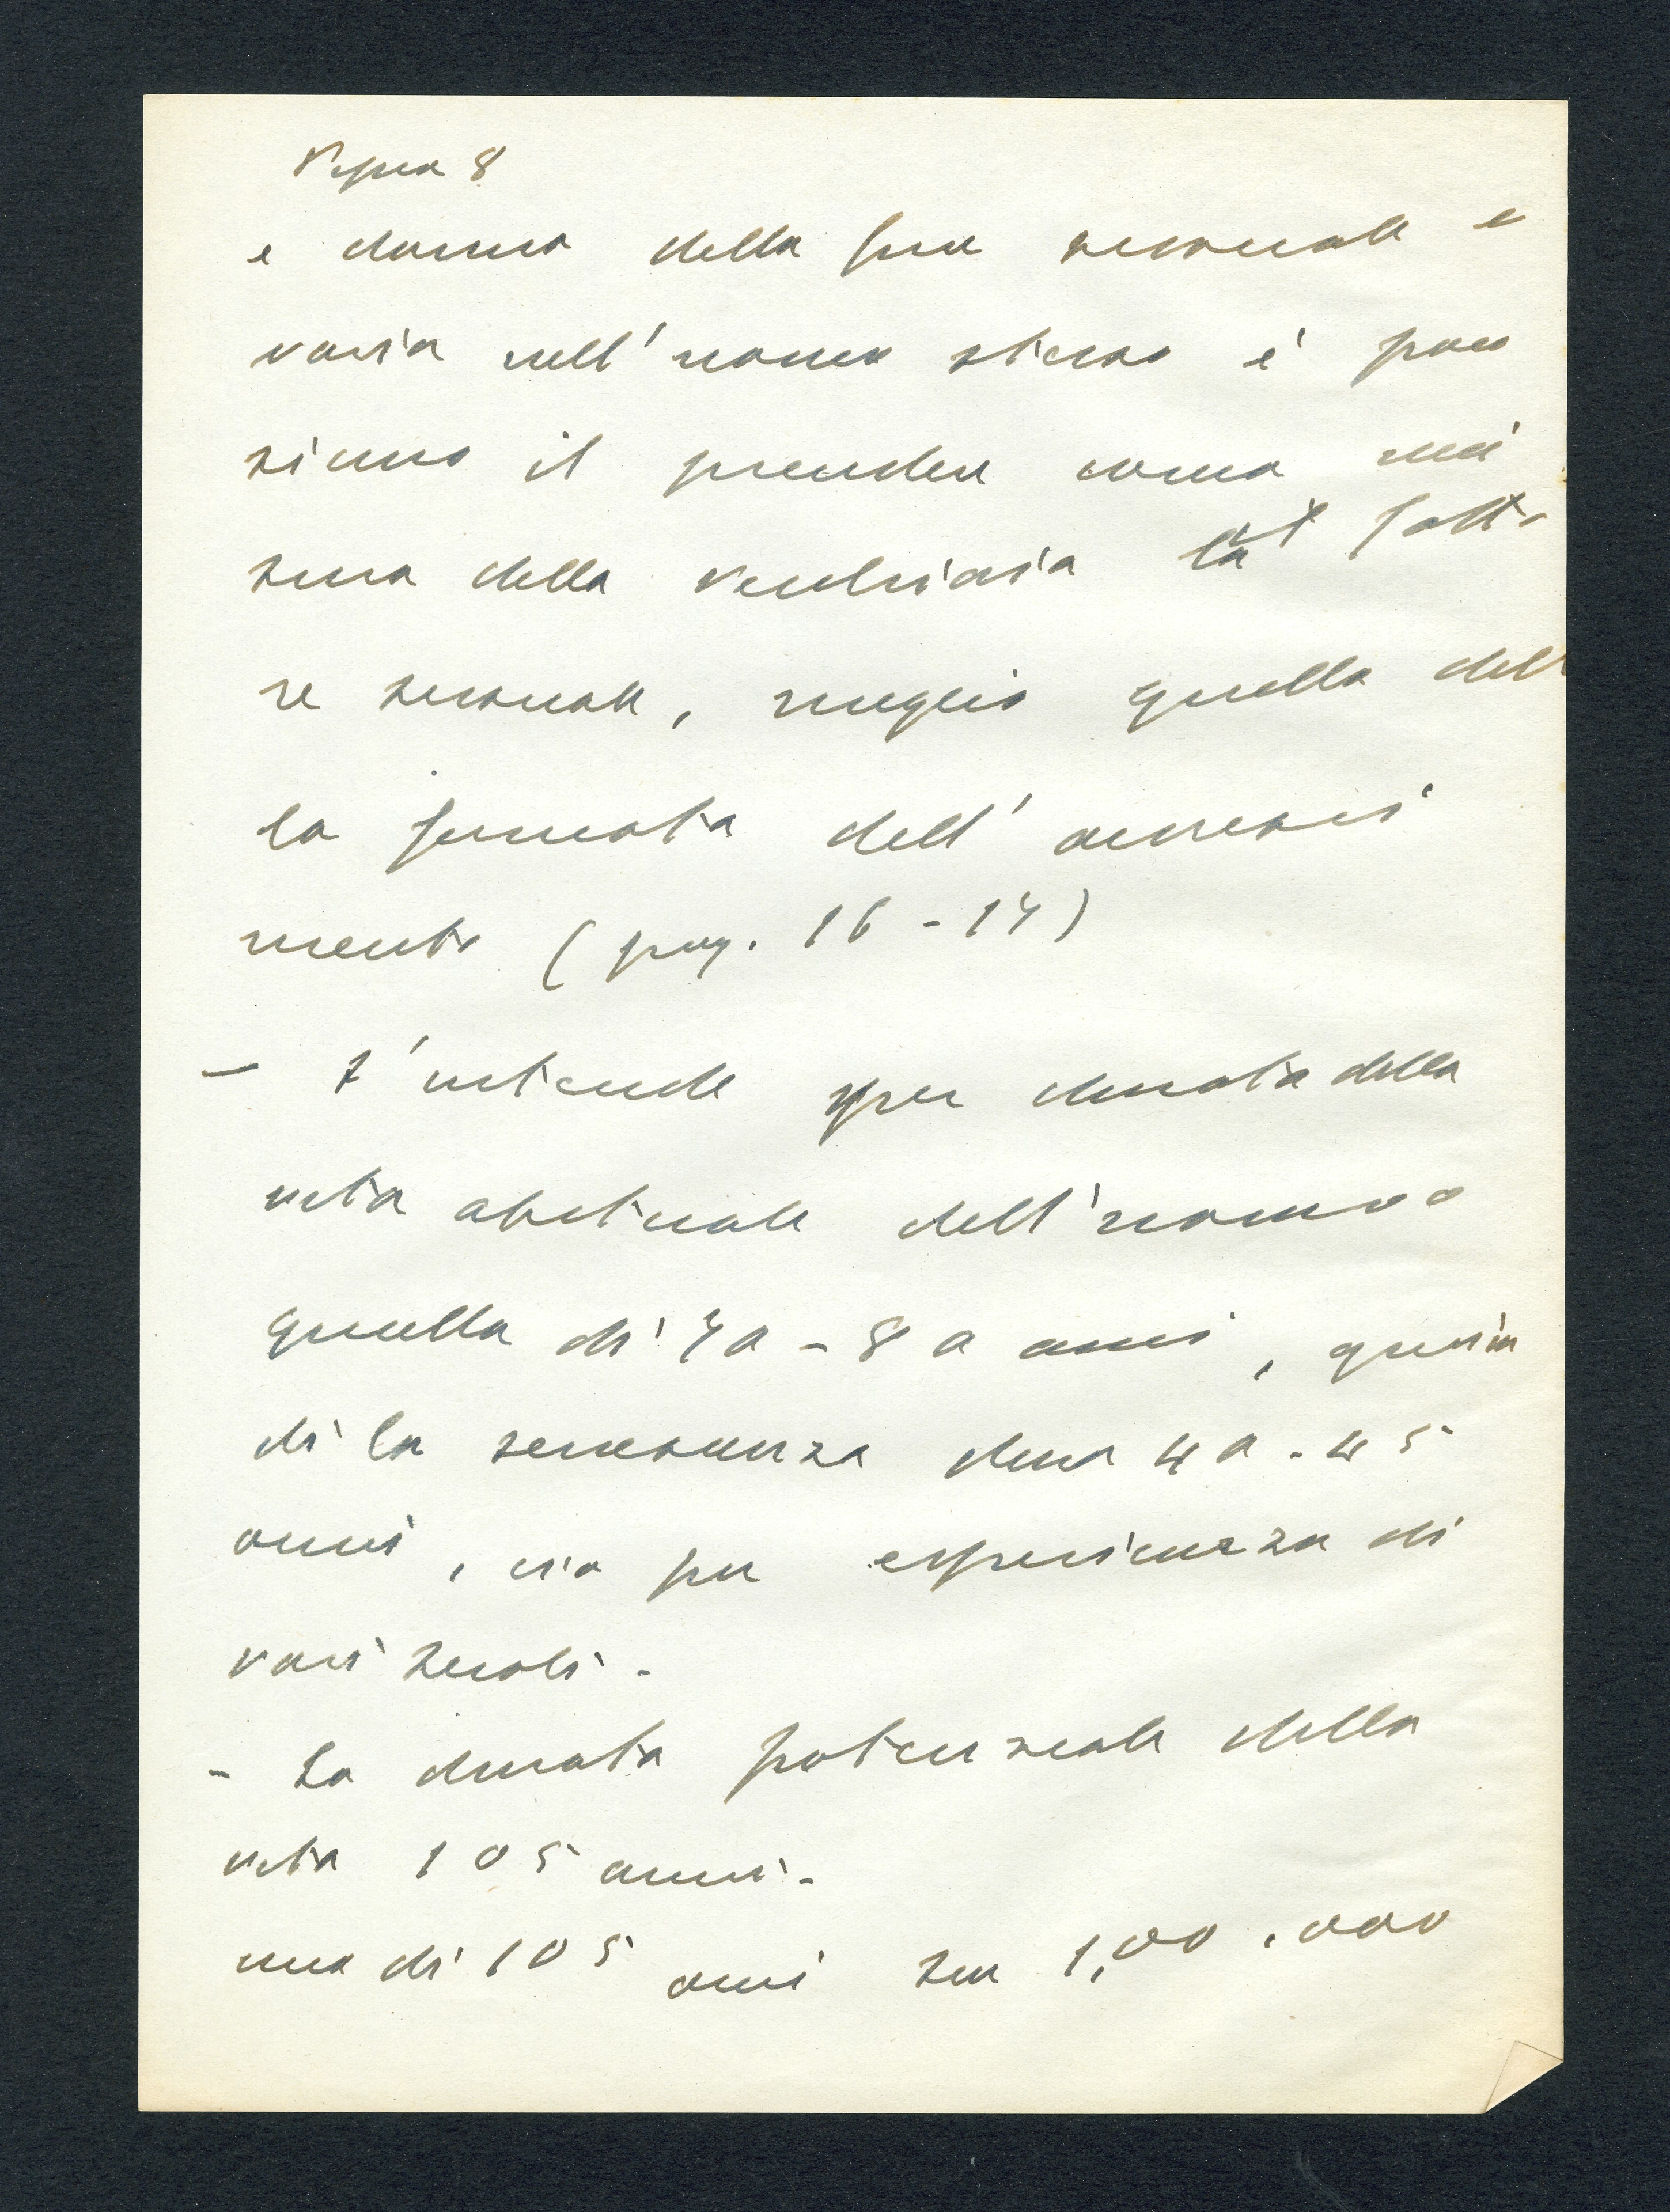 Vigna 8
e donna della fine sessuale e
varia nell'uomo stesso è pres
siamo il prendere come mi
sura della vecchiaia la fatto
re sessuale, meglio quella del
la fermata dell'accresci
mento (pag. 16 - 17)
- S'intende per durata della
vita abituale dell'uomo
quella di 70 - 80 anni, quin
di la senescenza dura 40 - 45
anni, cio per esperienza di
vari secoli -
- La durata potenziale della
vita 105 anni -
uno di 105 anni su 1,00.000